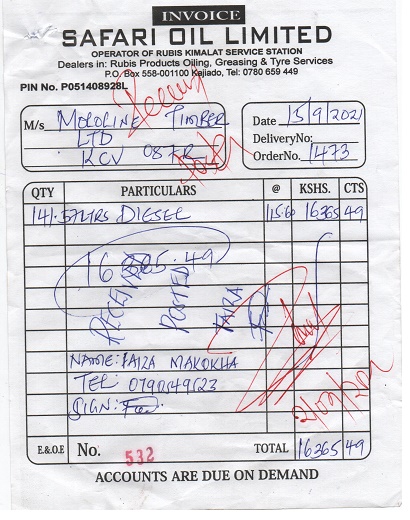 INVOICE
SAFARI OIL LIMITED
OPERATOR OF RUBIS KIMALAT SERVICE STATION
Dealers in: Rubis Products Oiling, Greasing & Tyre Services
P.O. Box 558-001100 Kajiado, Tel: 0780 659 449
PIN No. P051408928L
M/s MOLOLINE TIMBER
LTD
KCV 087R
Date 15/9/2021
DeliveryNo:
OrderNo. 1473
QTY PARTICULARS @ KSHS. CTS
141.57LTRS DIESEL 115.60 16365 49
RECEIVED
POSTED
FAIZA
NAME: FAIZA MAKOKHA
TEL 0790549623
SIGN:
E.&O.E No. 532 TOTAL 16365 49
ACCOUNTS ARE DUE ON DEMAND